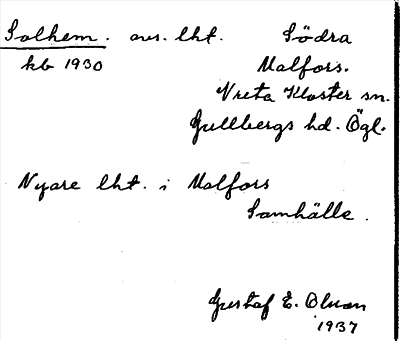 Solhem. avs. lht. Södra
kb 1930 Malfors.
Vreta Kloster sn.
Gullbergs hd. Ögl.
Nyare lht. i Malfors
Samhälle.
Gustaf E. Olsson
1937